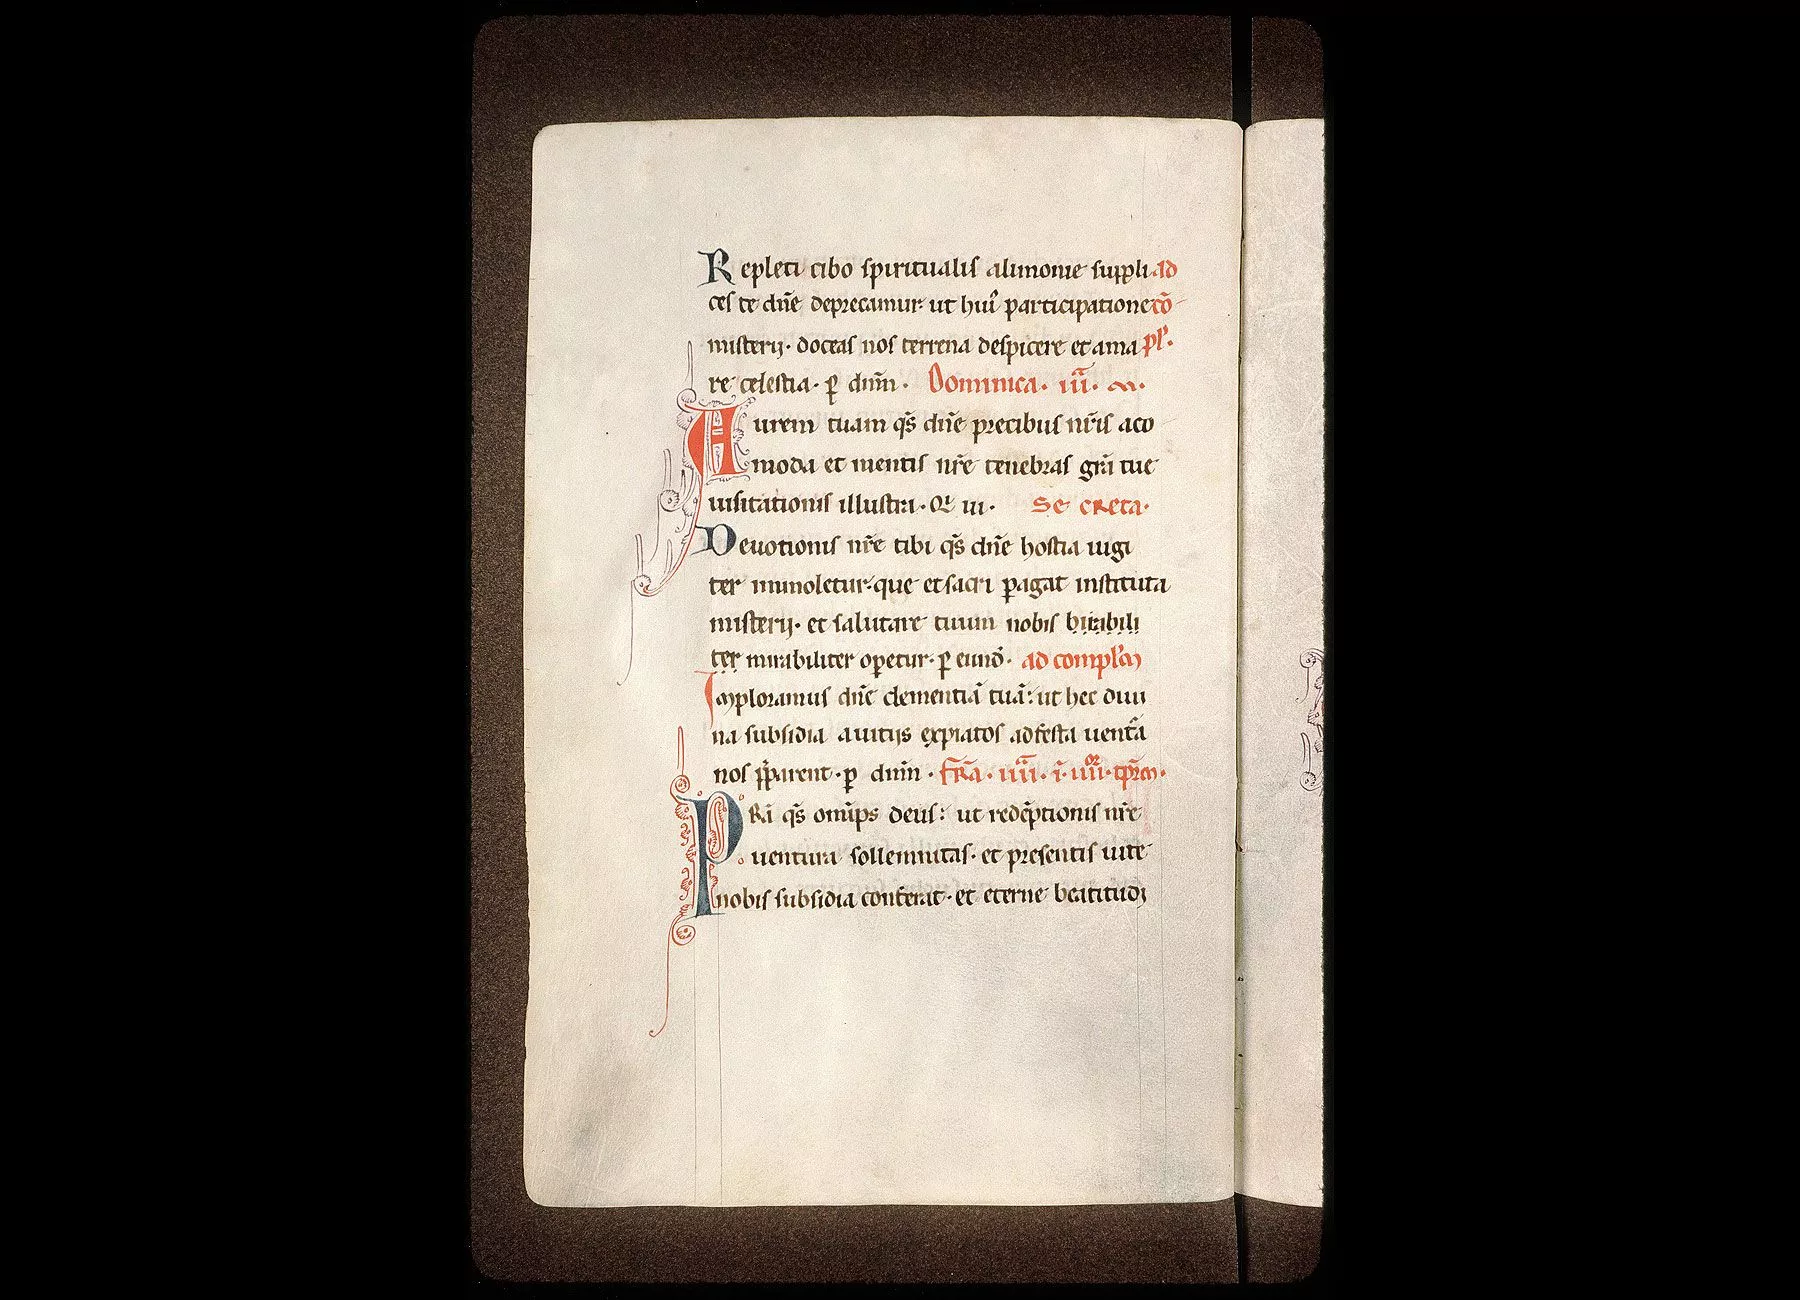 Repleti cibo spiritualis alimonie suppli ad
ces te dn̄e deprecamur. ut hui᷒ participatione cō
misterij. doceas nos terrena despicere et ama pl᷒.
re celestia. ꝑ dn̄m. Dominica. iii. a.
Aurem tuam qs̄ dn̄e precibus nr̄is aco
moda et mentis nr̄e tenebras gr̄a tue
uisitationis illustra. Q̄ ui. Secreta.
Deuotionis nr̄e tibi qs̄ dn̄e hostia iugi
ter immoletur. que et sacri ꝑagat instituta
misterij. et salutare tuum nobis
ter mirabiliter oꝑetur. ꝑ eund̄. ad compl̄m
Imploramus dn̄e clementiā tuā: ut hec diui
na subsidia a uitijs expiatos ad festa uentā
nos p̄parent. ꝑ dn̄m. fr̄ia. iiii. i. iiiiᵒʳ. tp̄m.
Pr̄a qs̄ omīps deus: ut redēptionis nr̄e
uentura sollemnitas. et presentis uite
nobis subsidia conferat. et eterne beatitudĩ